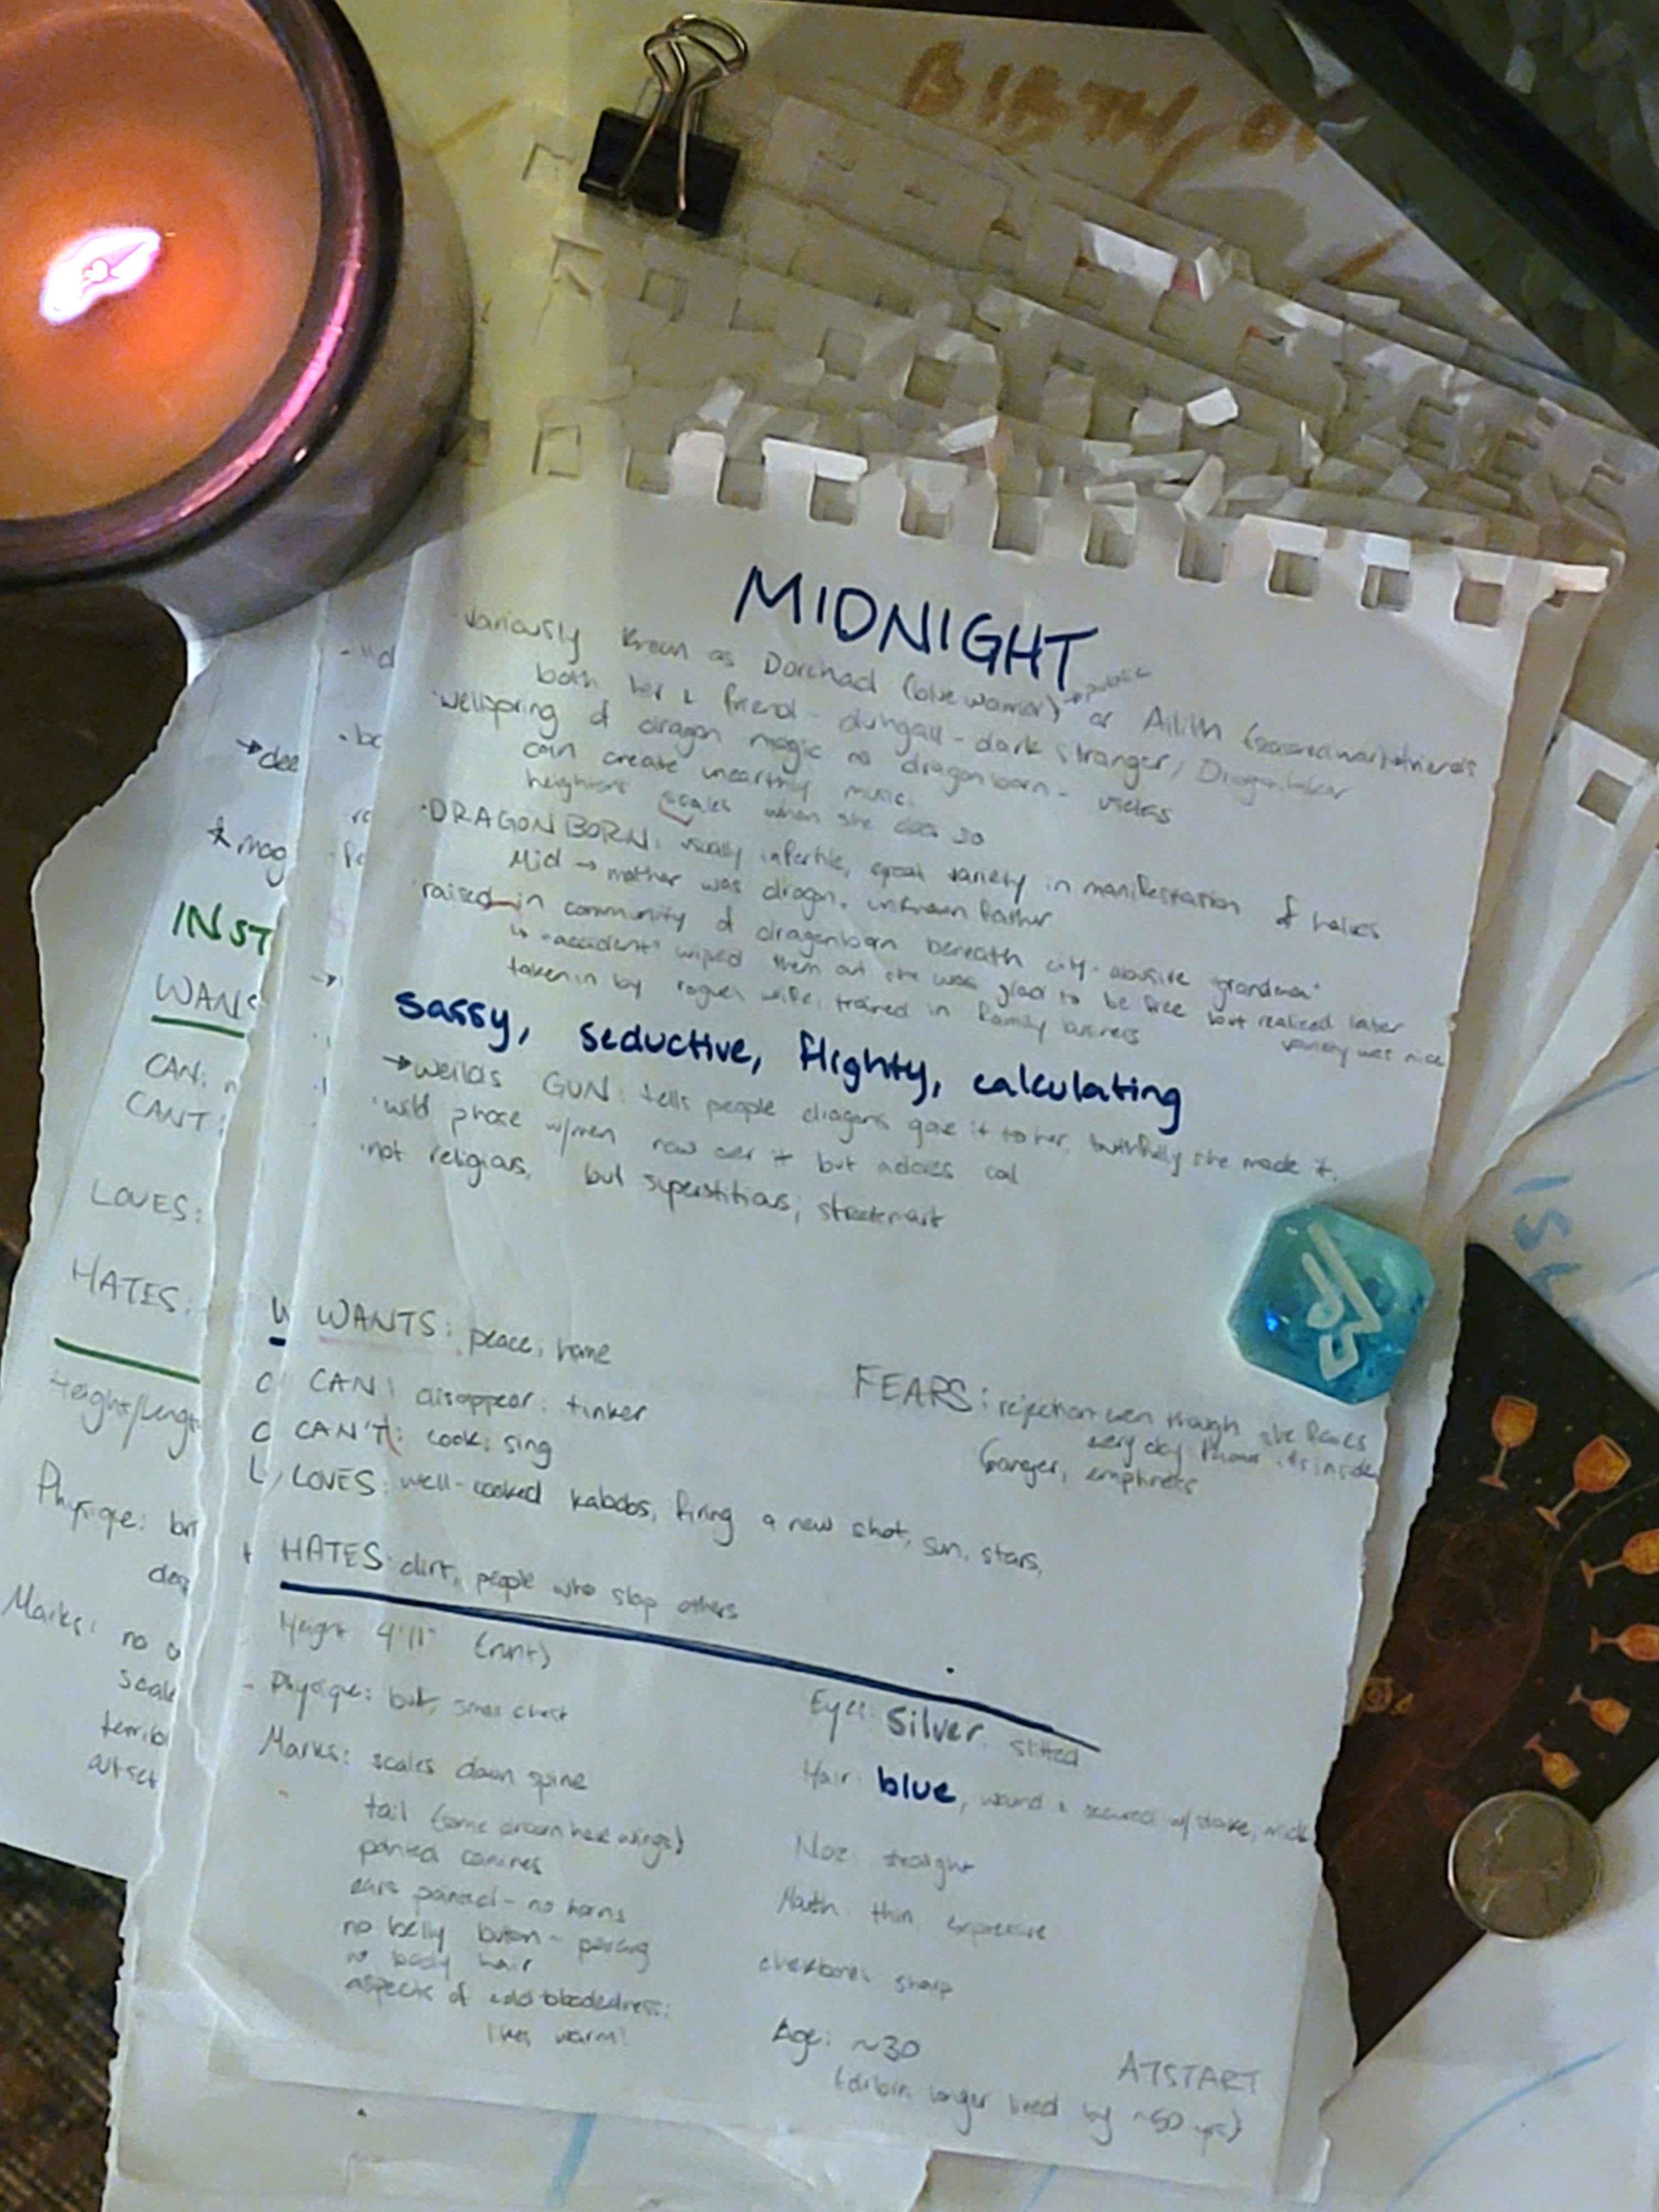 BIRTH, O
MIDNIGHT
variously known as Dorchad (blue warrior) → public or Ailith (seasoned war) → friends
both her & friend - dungall - dark stranger / Dragon
wellspring of dragon magic as dragonborn - useless
can create unearthly music
heightens scales when she does so
DRAGONBORN: usually infertile, great variety in manifestation of halves
Mid → mother was dragon, unknown father
raised in community of dragonborn beneath city - abusive "grandma"
↳ "accident" wiped them out she was glad to be free but realized later
variety was nice
taken in by rogue's wife, trained in family business
sassy, seductive, flighty, calculating
→ weilds GUN: tells people dragons gave it to her, truthfully she made it.
wild phase w/men now over it but adores
not religious, but superstitious; streetsmart
WANTS: peace, home
CAN: disappear; tinker
CAN'T: cook; sing
LOVES: well-cooked kabobs, firing a new shot, sun, stars,
HATES: dirt, people who slap others
FEARS: rejection even though she faces
every day from its inside
(anger, emptiness
Height 4'11" (runt)
Physique: butt, small chest
Marks: scales down spine
tail (some have wings)
pointed canines
ears pointed - no horns
no belly button - piercing
no body hair
aspects of coldbloodedness:
likes warm!
Eyes: Silver. slitted
Hair: blue, wound & secured w/stake,
Noze: straight
Mouth: thin expressive
cheekbones sharp
Age: ~30
ATSTART
longer lived by ~50 yrs)
→ dee
* mag
INST
WANS
CAN:
CANT:
LOVES:
HATES:
Height/Lengt
Physique:
Marks: no
scale
terrib
outset